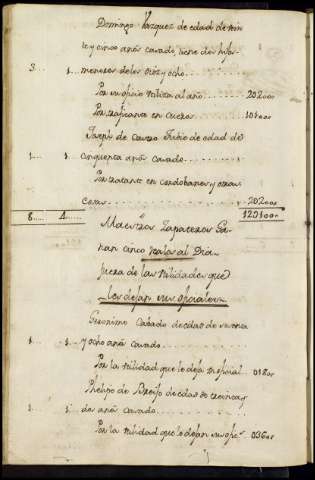 Domingo Vazquez de edad de vein
te y cinco años casado, tiene dos hijos
3 1 menores de los diez y ocho
Por su oficio utiliza al año 202
Por traficante en cueros 101
Joseph de Castro Tratte de edad de
1 1 cinquenta años casado
Por tratante en cordobanes y otras
cosas 202
8 4 1201
Maestros Zapateros Ga
nan cinco reales al Dia
fuera de las utilidades que
les dejan sus oficiales
Geronimo casado de edad de
1 1 y ocho años casado
Por la utilidad que le deja un oficial 018
Phelipe de edad de treinta y
1 1 dos años casado
Por la utilidad que le dejan sus ofics 036